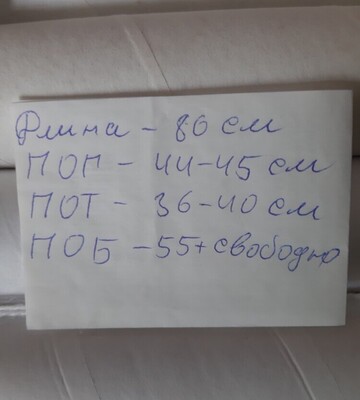 Длина - 80 см
ПОП - 44-45 см
ПОТ - 36-40 см
ПОБ - 55+ свободно